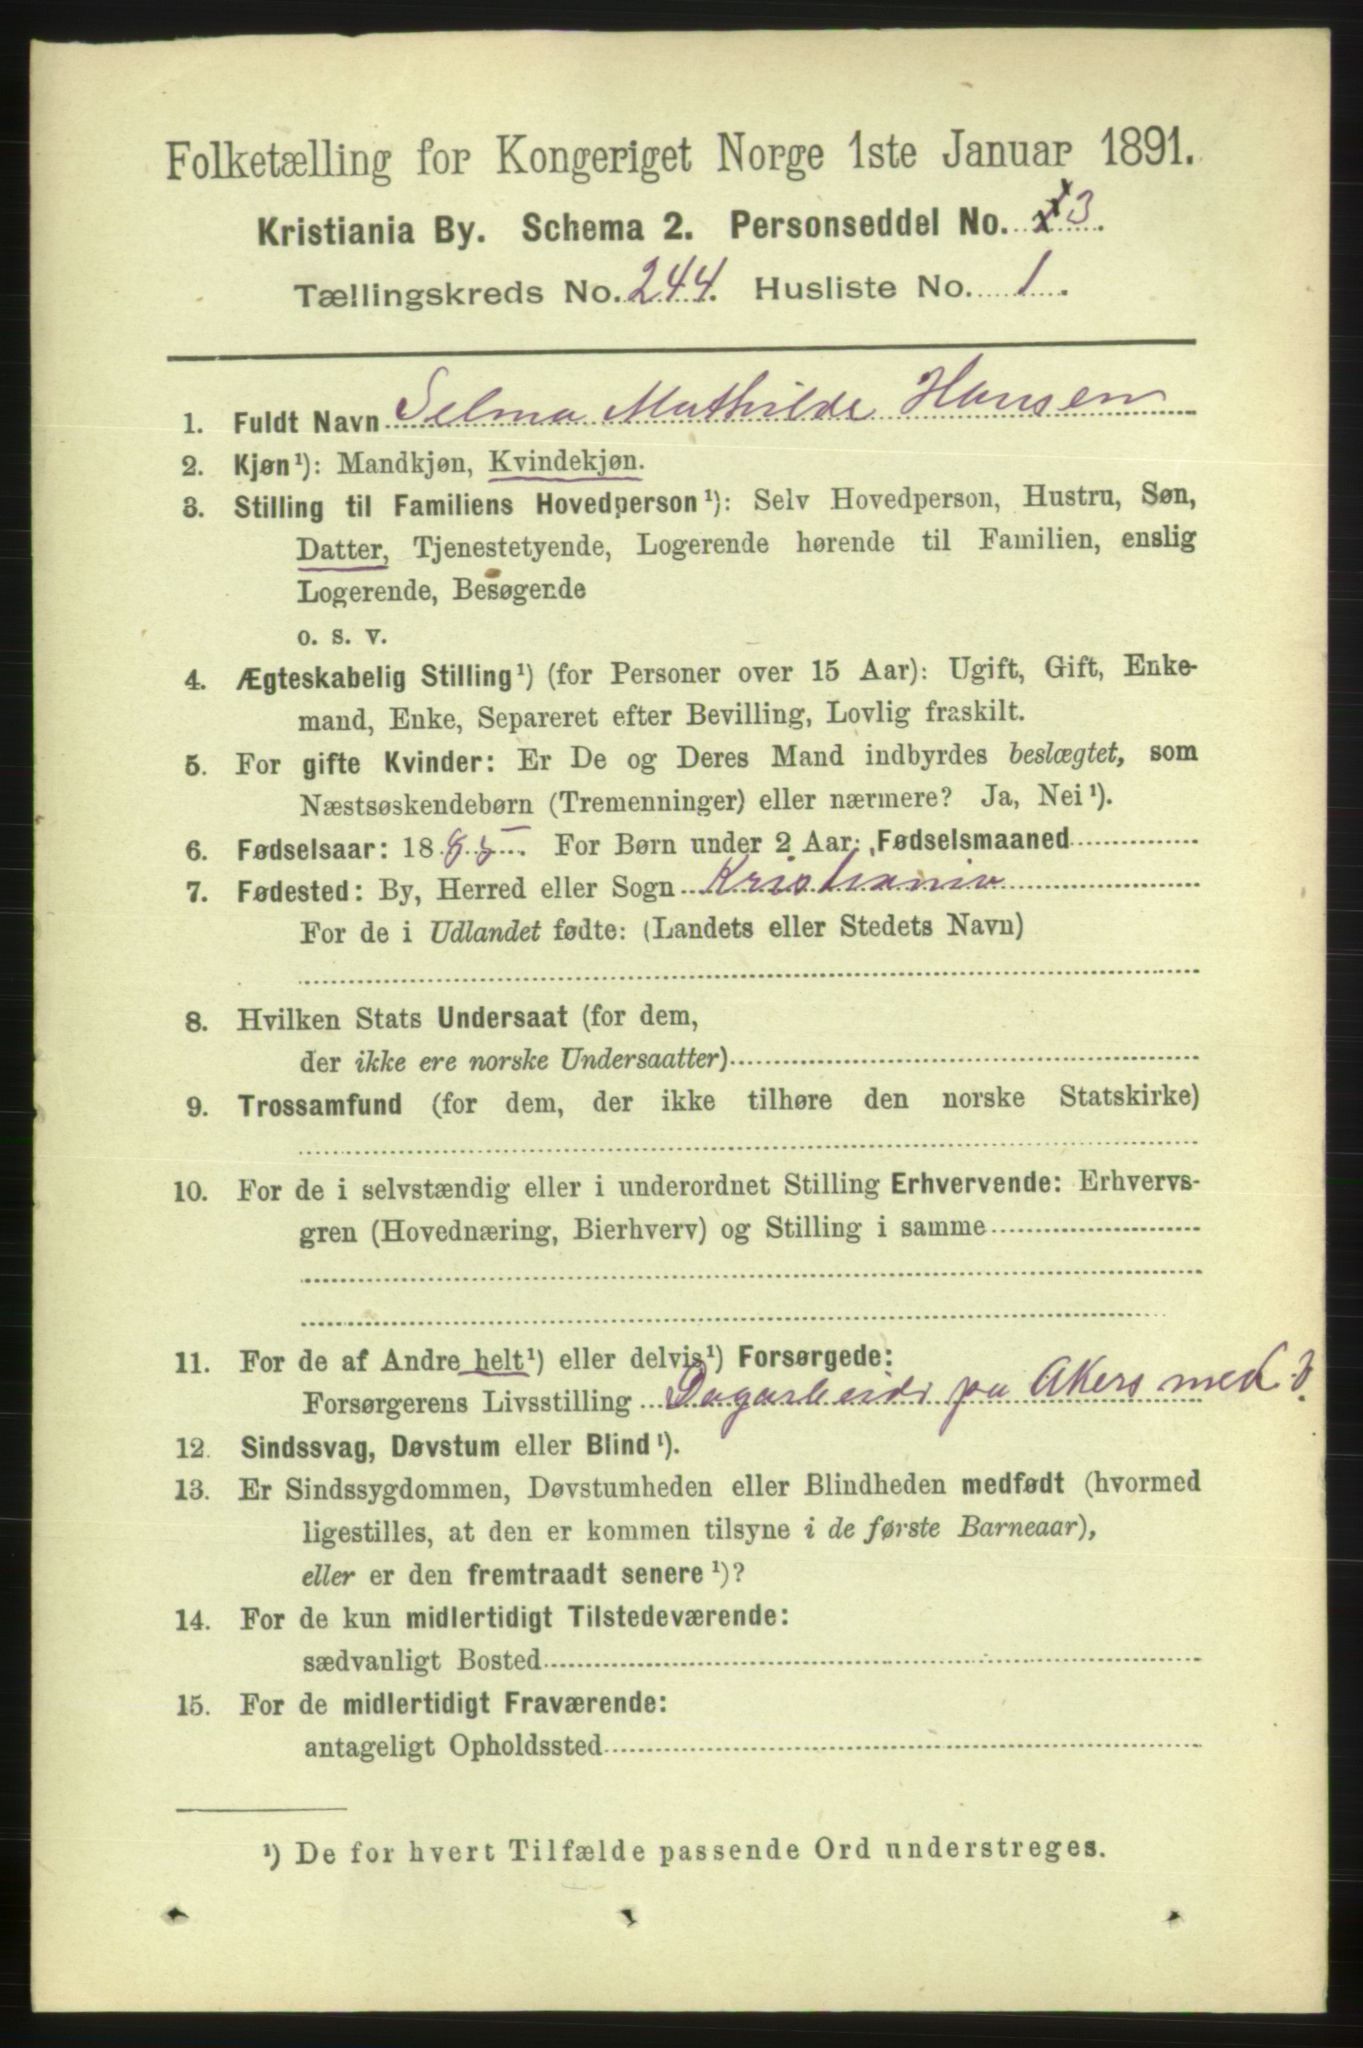 Folketælling for Kongeriget Norge 1ste Januar 1891.
Kristiania By. Schema 2. Personseddel No. 3.
Tællingskreds No. 244. Husliste No. 1.
1. Fuldt Navn Selma Mathilde Hansen
2. Kjøn¹): Mandkjøn, Kvindekjøn.
3. Stilling til Familiens Hovedperson¹): Selv Hovedperson, Hustru, Søn,
Datter, Tjenestetyende, Logerende hørende til Familien, enslig
Logerende, Besøgende
o. s. v.
4. Ægteskabelig Stilling¹) (for Personer over 15 Aar): Ugift, Gift, Enke-
mand, Enke, Separeret efter Bevilling, Lovlig fraskilt.
5. For gifte Kvinder: Er De og Deres Mand indbyrdes beslægtet, som
Næstsøskendebørn (Tremenninger) eller nærmere? Ja, Nei¹).
6. Fødselsaar: 1885. For Børn under 2 Aar: Fødselsmaaned
7. Fødested: By, Herred eller Sogn Kristiania
For de i Udlandet fødte: (Landets eller Stedets Navn)
8. Hvilken Stats Undersaat (for dem,
der ikke ere norske Undersaatter)
9. Trossamfund (for dem, der ikke tilhøre den norske Statskirke)
10. For de i selvstændig eller i underordnet Stilling Erhvervende: Erhvervs-
gren (Hovednæring, Bierhverv) og Stilling i samme
11. For de af Andre helt¹) eller delvis¹) Forsørgede:
Forsørgerens Livsstilling Dagarbeider pa Akers med
12. Sindssvag, Døvstum eller Blind¹).
13. Er Sindssygdommen, Døvstumheden eller Blindheden medfødt (hvormed
ligestilles, at den er kommen tilsyne i de første Barneaar),
eller er den fremtraadt senere¹)?
14. For de kun midlertidigt Tilstedeværende:
sædvanligt Bosted
15. For de midlertidigt Fraværende:
antageligt Opholdssted
¹) De for hvert Tilfælde passende Ord understreges.